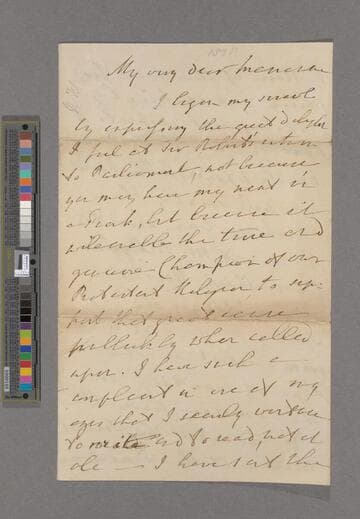 My very dear
I begin my
by expressing the great delight
I feel at Sir Robert's return
to Parliament, not because
you may have my next in
a Frank, but because it
will enable the true and
genuine Champion of our
Protestant Religion to sup-
port that great cause
publickly when called
upon. I have such a
complaint in one of my
eyes that I scarcely venture
to write and to read, not at
all — I have sent the